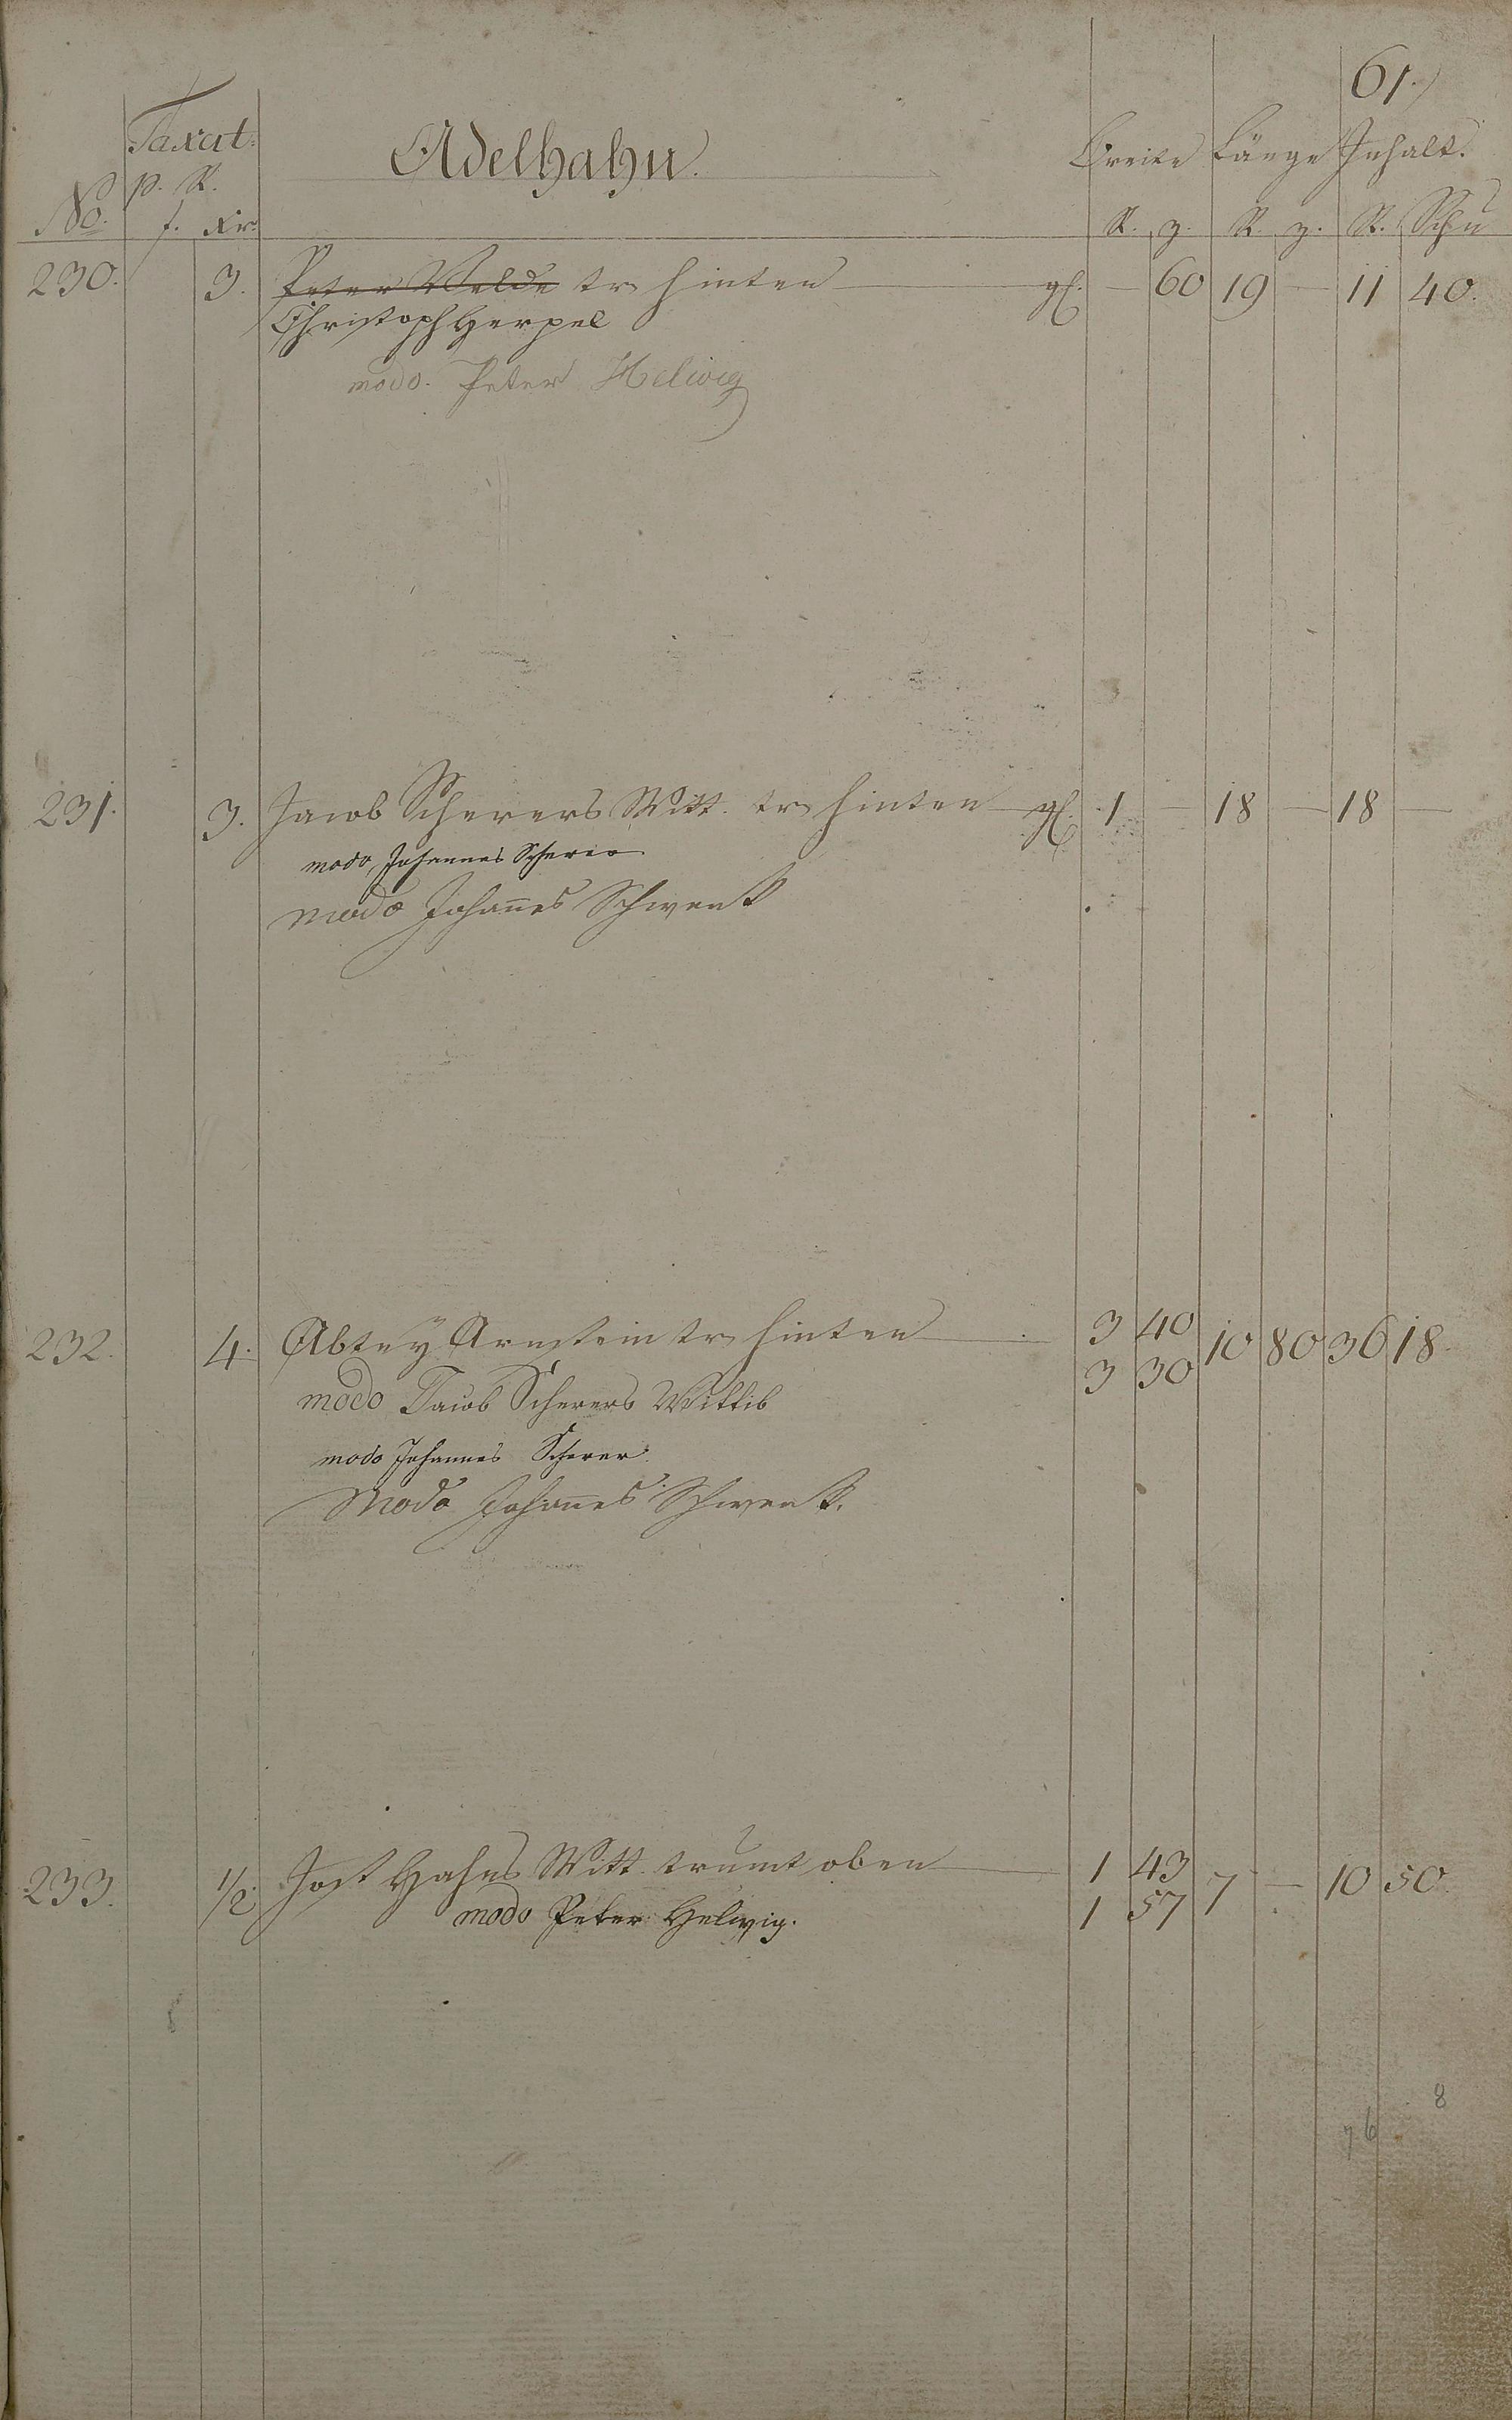 61.
Taxat: Adelhahn. Breite Länge Inhalt.
p. R.
No. f. Xr. R. z. R. z. R. Schu
230. 3. Peter Velde tr. hinten gl. — 60 19 — 11 40.
Christoph Herpel
modo. Peter Helwig
231. 3. Jacob Scherers Witt. tr. hinten gl. 1 — 18 — 18 —
modo Johannes Scherer
modo Johanes Schwenk
232. 4. Abtey Arnstein tr. hinten 3 40 10 80 36 18.
3 30
modo Jacob Scherers Wittib
modo Johannes Scherer.
Modo Johanes Schwenk.
233. 1/2. Jost Hahns Witt. trumt oben 1 43 7 — 10 50.
modo Peter Helwig. 1 57
8
76